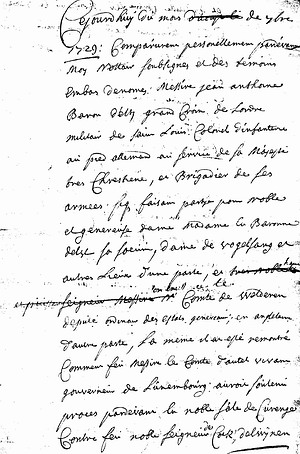 Cejourdhuy du mois de 9bre
1729: Comparurent personellement pardevant
Moy Nottair soubsignes et des temoins
embas denomes. Messire jean anthoine
Baron d'eltz grand Croix de Lordre
militair de sain Louis Colonel d'infanterie
au pied allemand au service de sa Majesté
tres Chrestiene, et Brigadier de ses
armees. faisan partie pour noble
et genereuse dame Madame la Baronne
delst sa soeur, dame de vogelsang et
autres Lieux d'une parte, et
seigneur Messire Comte de
deputé ordinair des Estats generaux en
d'autre parte, La meme at esté remontré
Comment feu Messire le Comte d'autel vivant
gouverneur de Luxembourg auroit soutenu
proces pardevant la noble sale de Curenge
Contre feu noble seigneur de